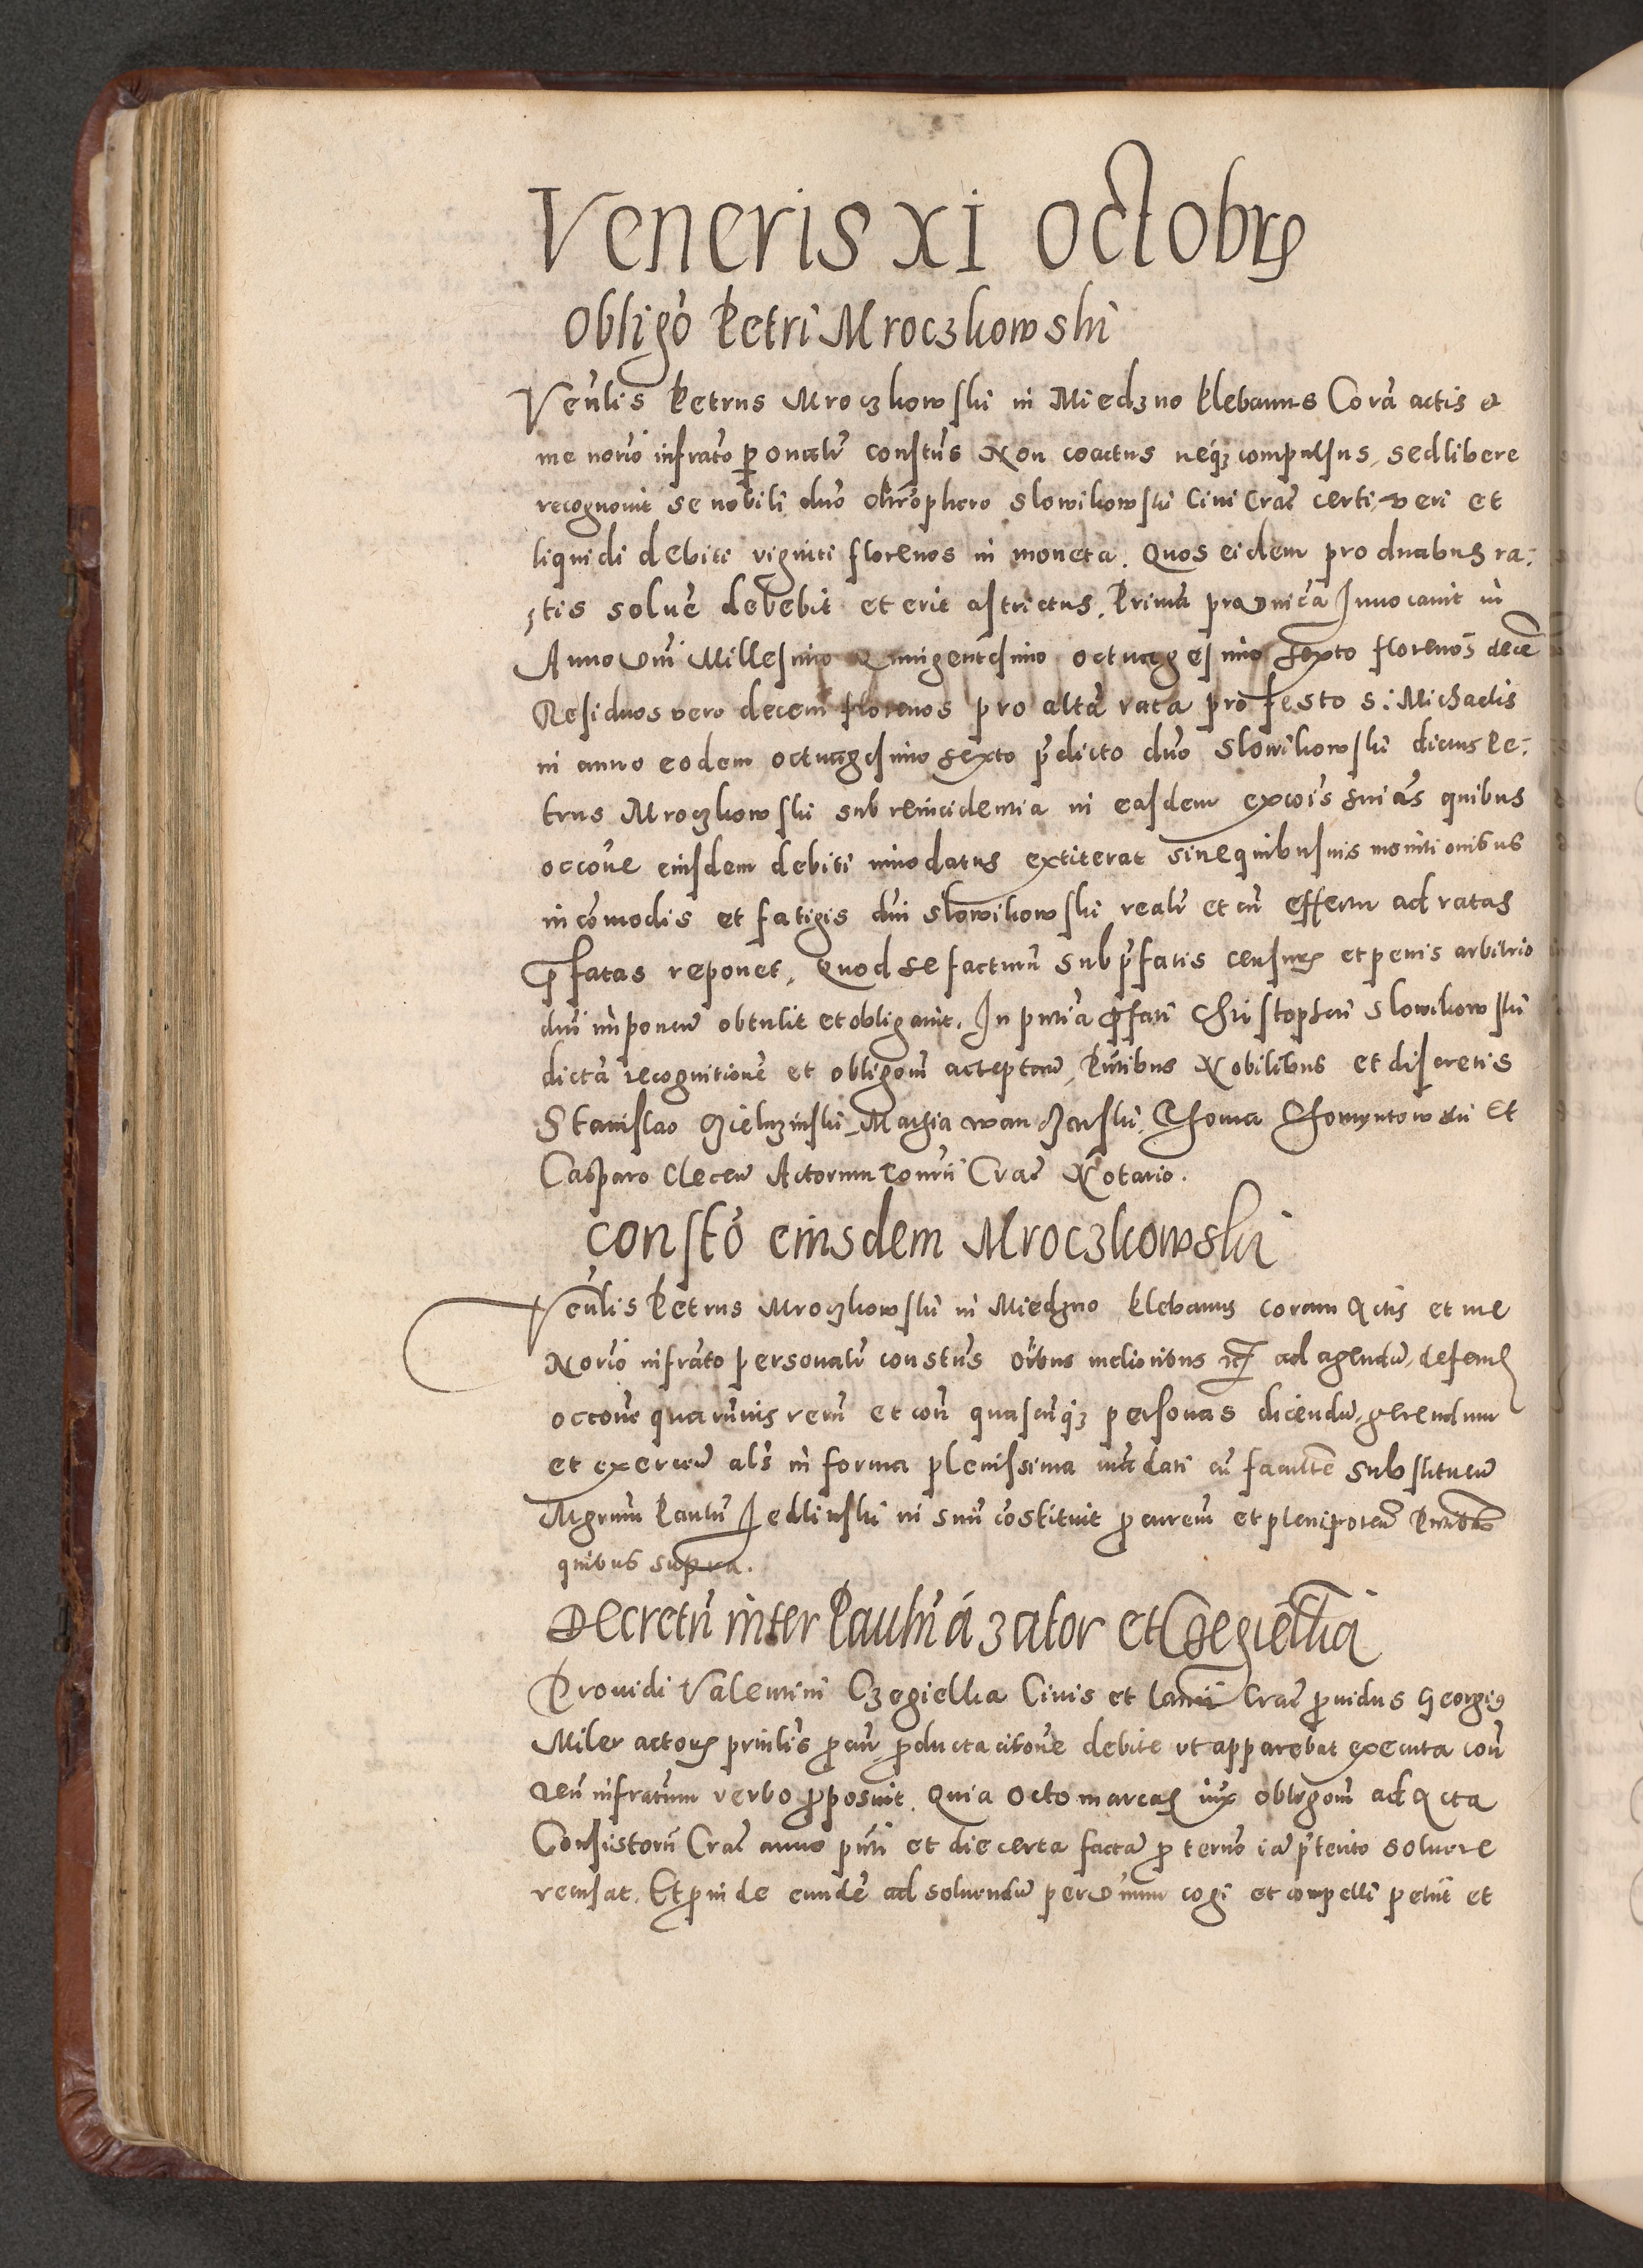 Veneris XI Octobris
Obligo Petri Mroczkowski
Venlis Petrus Mroczkowski in Miedzno Plebanus Cora actis et
me norio infrato personalr constus Non coactus neqz compulsus, sed libere
recognouit se nobili dno Christophero Slowikowski Ciui Crac certi, veri et
liquidi debiti viginti florenos in moneta. Quos eidem pro duabus ra-
tis soluere debebit et erit astrictus. Prima pro dnica Inuocauit in
Anno Dni Millesimo Quingentesimo octuagesimo sexto florenos dece
Residuos vero decem florenos pro altera rata pro festo S. Michaelis
in anno eodem octuagesimo sexto pdicto dno Slowikowski dictus Pe-
trus Mroczkowski sub reincidentia in easdem excois snias quibus
occone eiusdem debiti innodatus extiterat sine quibusuis monitionibus
incomodis et fatigis dni Slowikowski realr et cu effectu ad ratas
pfatas reponet. Quod se facturu sub pfatis censuris et penis arbitrio
dni imponen obtulit et obligauit. In pntia pfati Christopheri Slowikowski
dicta recognitione et obligom acceptan, Pntibus Nobilibus et discretis
Stanislao Gieluzinski, Mathia Wanzarski, Thoma Chomyntowski Et
Casparo Clecen Actorum Consrii Crac Notario.
Consto eiusdem Mroczkowski
Venlis Petrus Mroczkowski in Miedzno Plebanus coram Actis et me
Norio infrato personalr constus oibus melioribus ad agendu, defend
occone quarumuis reru et con quascuqz personas dicendu, gerendum
et exercen als in forma plenissima madati cu facultte substituen
Mgrum Paulu Jedlinski in suu costituit procurem et plenipoten Pntibus
quibus supra.
Decretu inter Paulu a Zator et Czegielka
Prouidi Valentini Czegielka Ciuis et lanii Crac prouidus Georgius
Miler actoris princlis procur, producta citone debite vt apparebat executa con
Reu infratum verbo proposuit. Quia octo marcas iux obligom ad Acta
Consistorii Crac anno pnti et die certa facta pro termo ia pterito soluere
recusat. Et proinde eunde ad soluendu per Dnum cogi et compelli petiit et